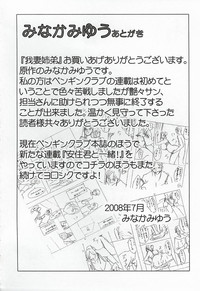 みなかみゆう あとがき
『我妻姉弟』お買いあげありがとうございます。
原作のみなかみゆうです。
私の方はペンギンクラブの連載は初めてと
いうことで色々苦戦しましたが艶々サン、
担当さんに助けられ1つ無事に終了する
ことが出来ました。温かく見守って下さった
読者様共々ありがとうございました。
現在ペンギンクラブ本誌のほうで
新たな連載『安住君と一緒!』を
やっていますのでコチラのほうもまた
続けてヨロシクですよ!
2008年7月
みなかみゆう